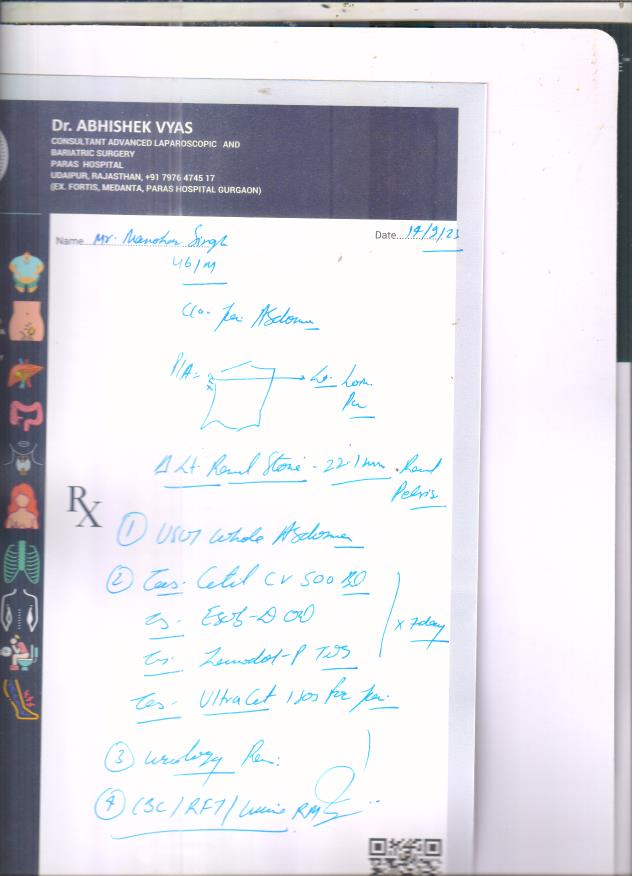 Dr. ABHISHEK VYAS
CONSULTANT ADVANCED LAPAROSCOPIC AND
BARIATRIC SURGERY
PARAS HOSPITAL
UDAIPUR, RAJASTHAN, +91 7976 4745 17
(EX. FORTIS, MEDANTA, PARAS HOSPITAL GURGAON)
Name Mr. Manohar Singh
Date 14/9/23
46/M
C/o. Pain Abdomen
P/A =
Lt.
Δ Lt. Renal Stone - 22.1mm Renal
Pelvis
Rx
① USG Whole Abdomen
② Tab. Cetil CV 500 BD
Esob-D OD
x 7day
Zerodol-P TDS
Tab. Ultracet
③ Urology
④ CBC/RFT/Urine RM